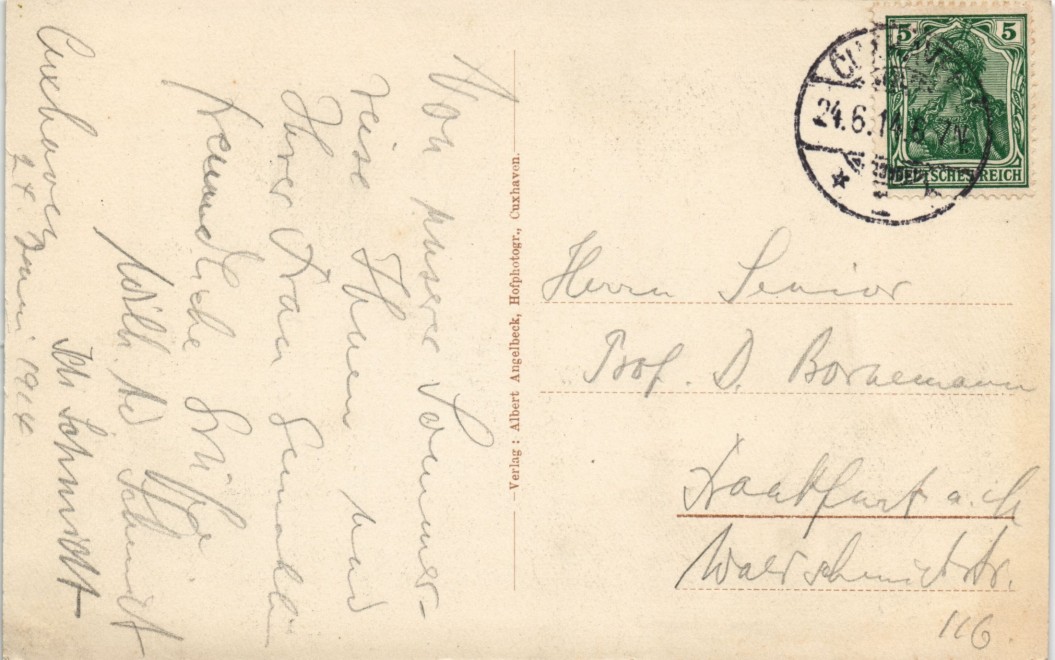 Cuxhaven
24. Juni 1914
Von unserer Sommer-
reise Ihnen und
Ihrer Frau Gemahlin
freundliche Grüße
Schmidt
Schmidt
Verlag: Albert Angelbeck, Hofphotogr., Cuxhaven.
5 5
DEUTSCHES REICH
24.6.14
Herrn Senior
Prof. D. Bornemann
Frankfurt a. M
Waldschmidtstr.
116